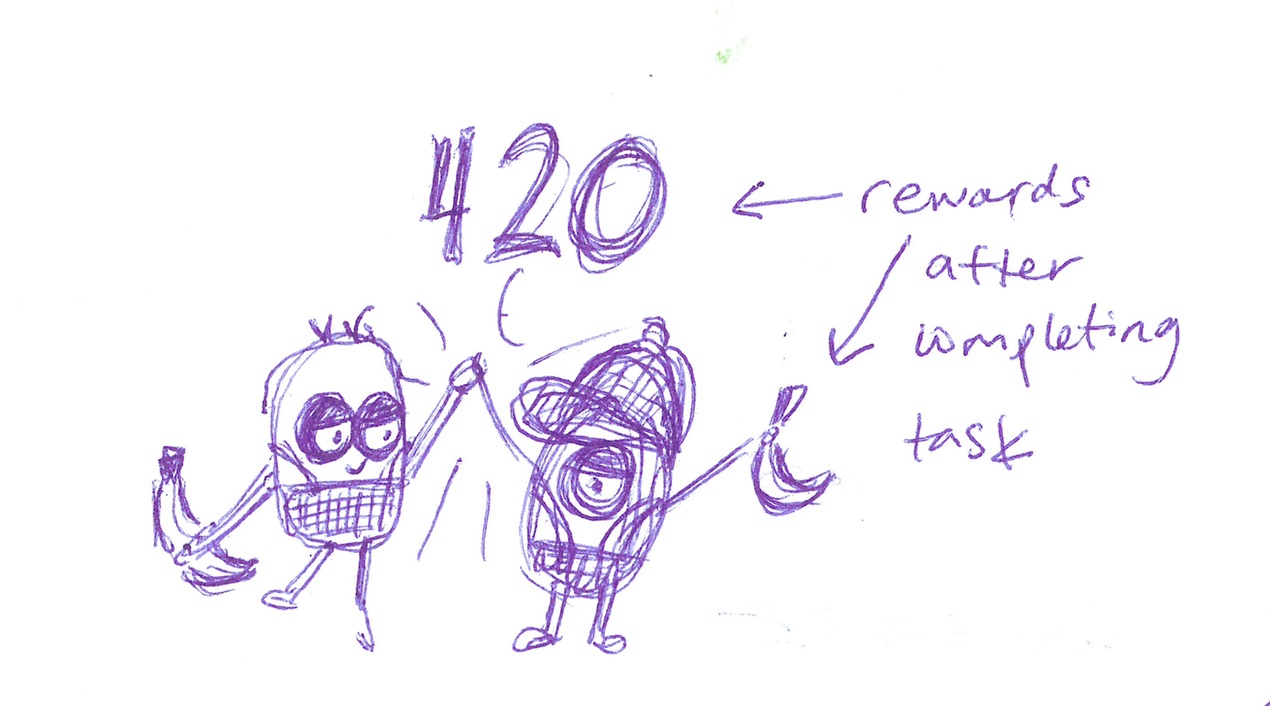 420
rewards
after
completing
task